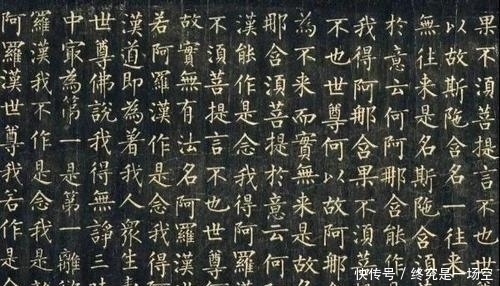 果不須菩提言不
以故斯陁含名一往来
無往来是名斯陁含須
於意云何阿那含能作
我得阿那含果不須菩
不也世尊何以故阿那
為不来而實無来是故
那含須菩提於意云何
漢能作是念我得阿羅
不須菩提言不也世尊何
故實無有法名阿羅漢
若阿羅漢作是念我得
漢道即為着我人眾生
世尊佛說我得無諍三
中冣為第一是第一離
羅漢我不作是念我
阿羅漢世尊我若作是
快传号 / 终究是一场空